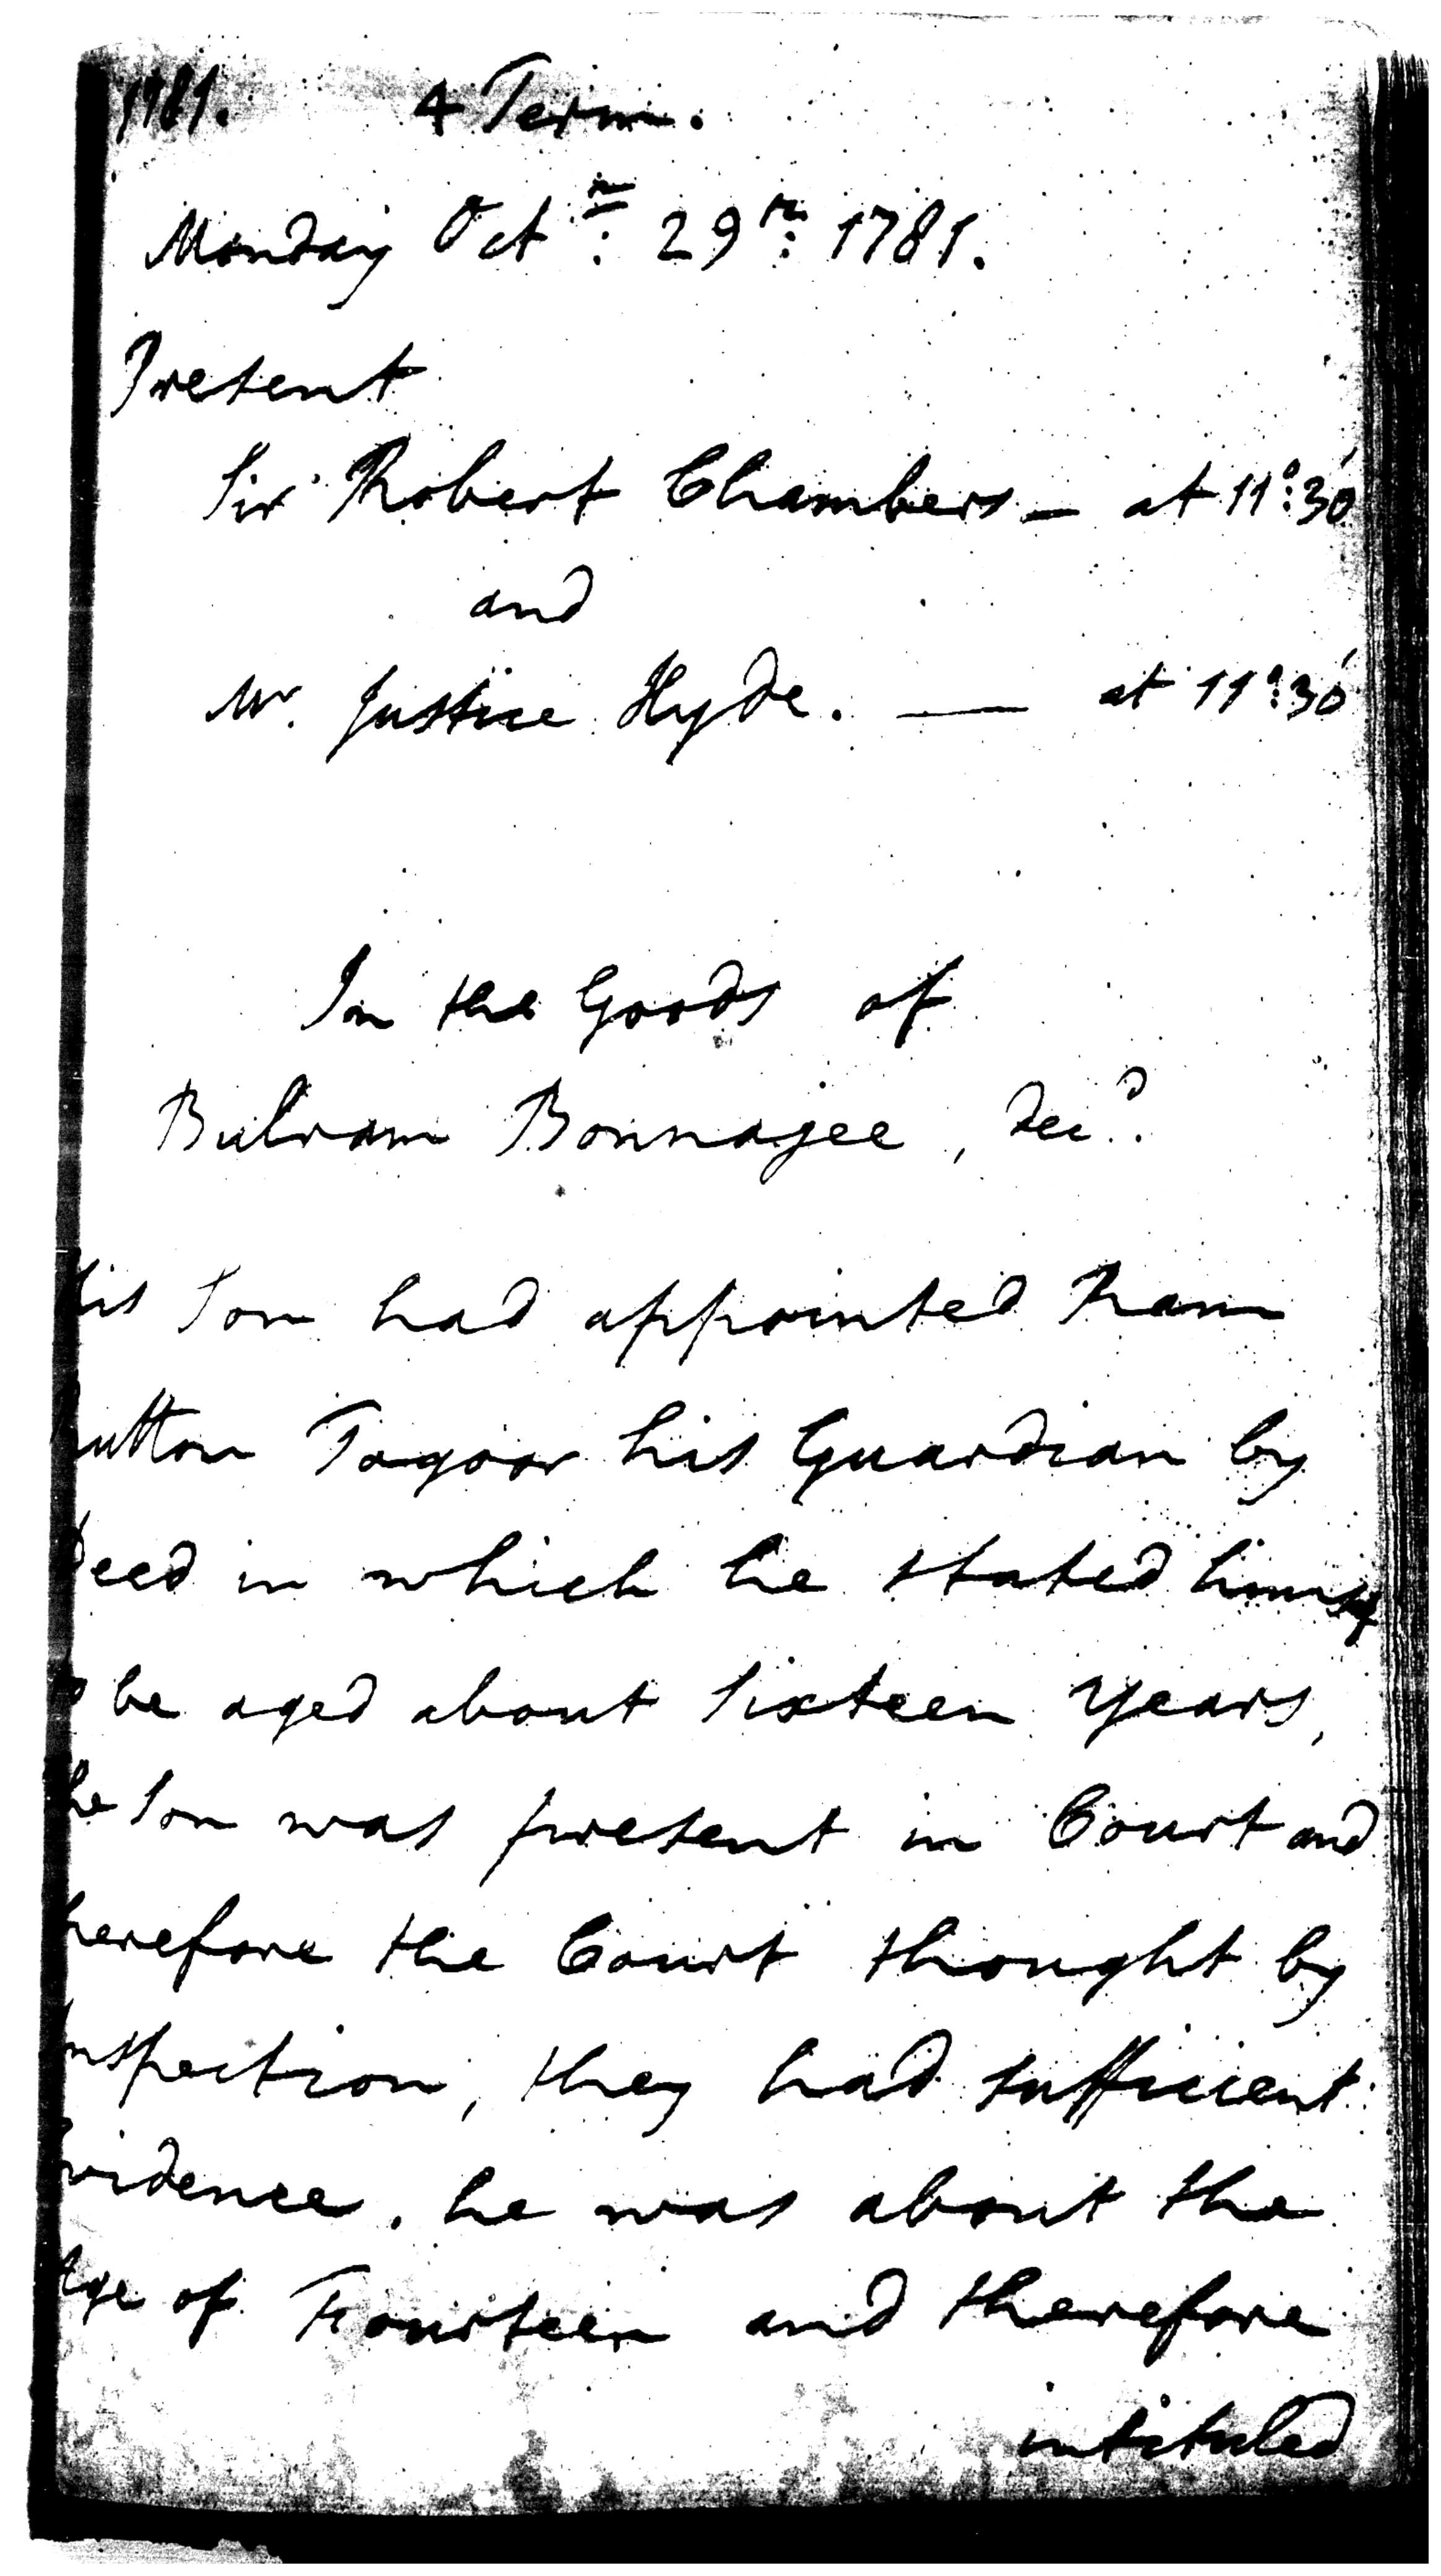 1781. 4 Term.
Monday Octr: 29th: 1781.
Present
Sir Robert Chambers — at 11°:30'
and
Mr. Justice Hyde. — at 11°:30'
In the Goods of
Bulram Bonnagee, decd.
his Son had appointed Ram
utton Tagoor his Guardian by
Deed in which he stated himself
to be aged about Sixteen Years,
he Son was present in Court and
herefore the Court thought by
nspection, they had sufficient
vidence, he was about the
Age of Fourteen and therefore
intituled